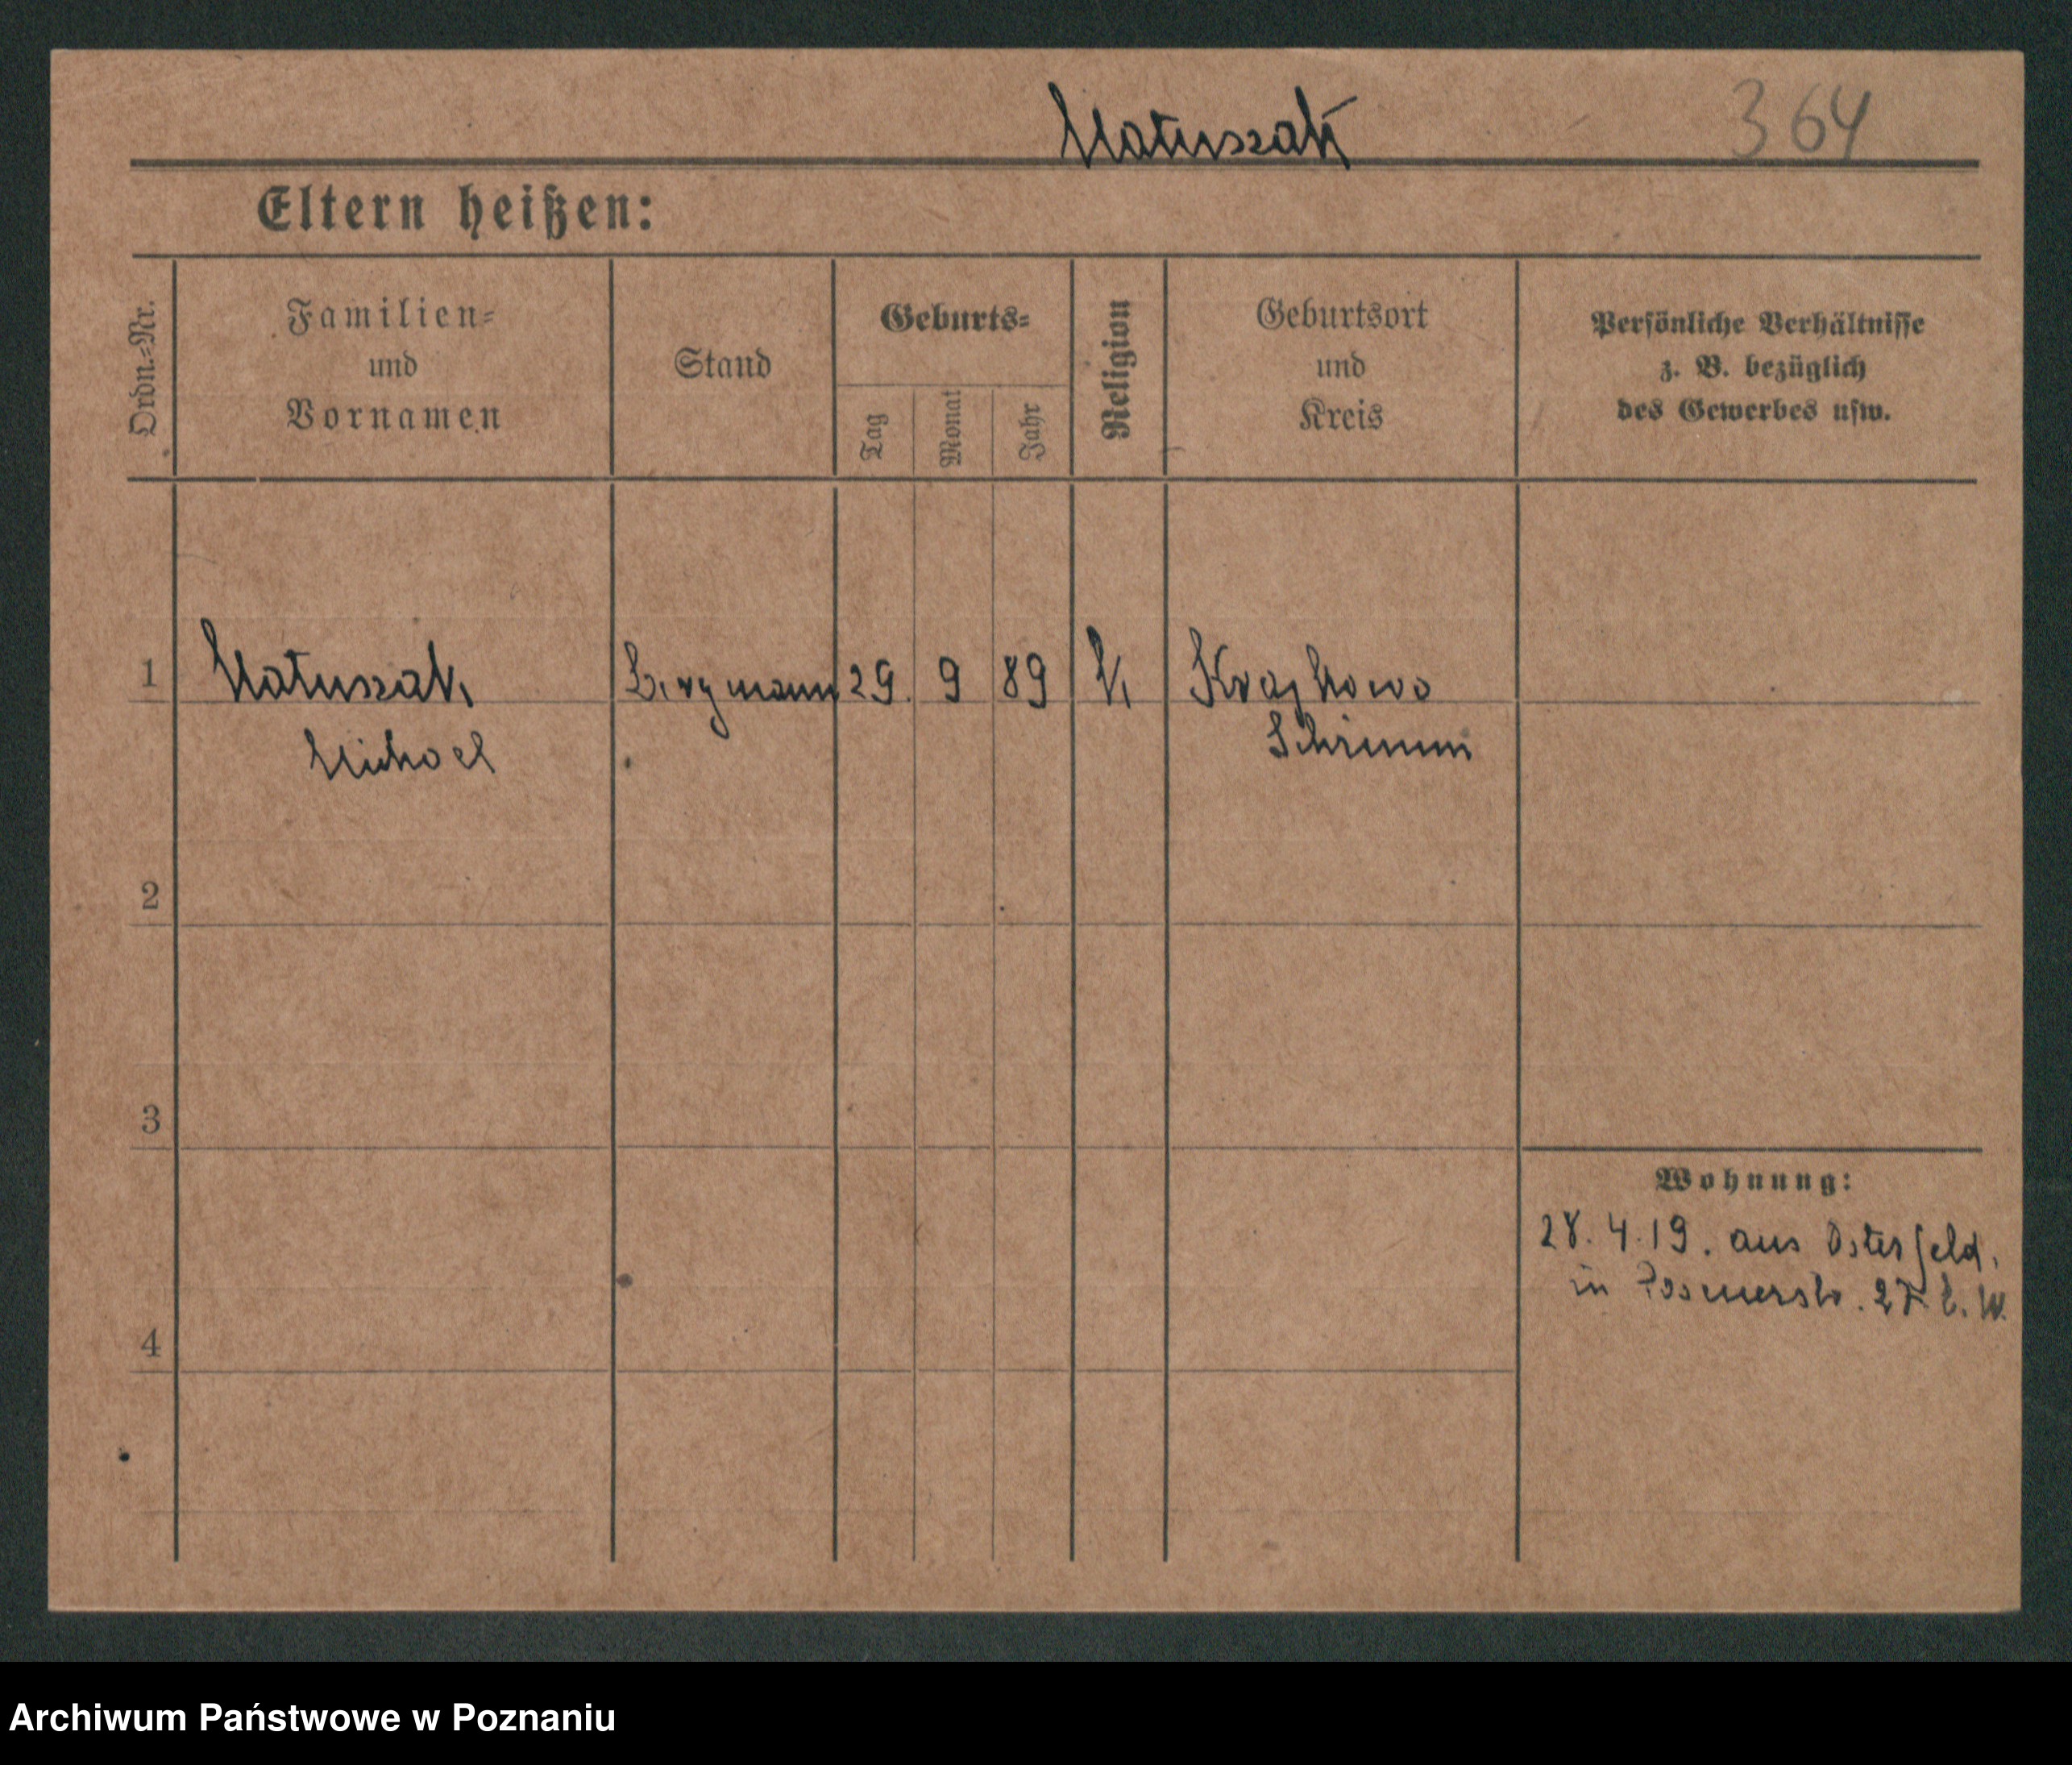 Matuszak
364
Eltern heißen:
Ordn.-Nr.
Familien-
und
Vornamen
Stand
Geburts-
Tag
Monat
Jahr
Religion
Geburtsort
und
Kreis
Persönliche Verhältnisse
z. B. bezüglich
des Gewerbes usw.
1 Matuszak, Bergmann 29. 9 89 K. Krajkowo
Michael Schrimm
2
3
Wohnung:
28. 4. 19. aus Osterfeld.
in Posenerstr. 27. b. W.
4
Archiwum Państwowe w Poznaniu